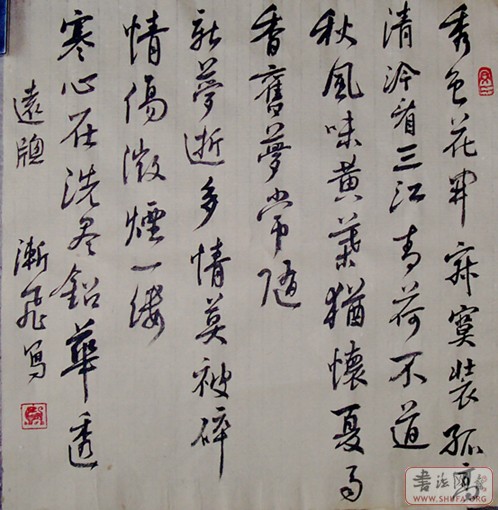 秀色花开寂寞装孤高
清泠眉三江青荷不道
秋风味黄叶犹怀夏日
香旧梦常随
新梦逝多情莫被碎
情伤微烟一缕
寒心在洗尽铅华透
远
渐飞写
书法
WWW.SHUFA.ORG